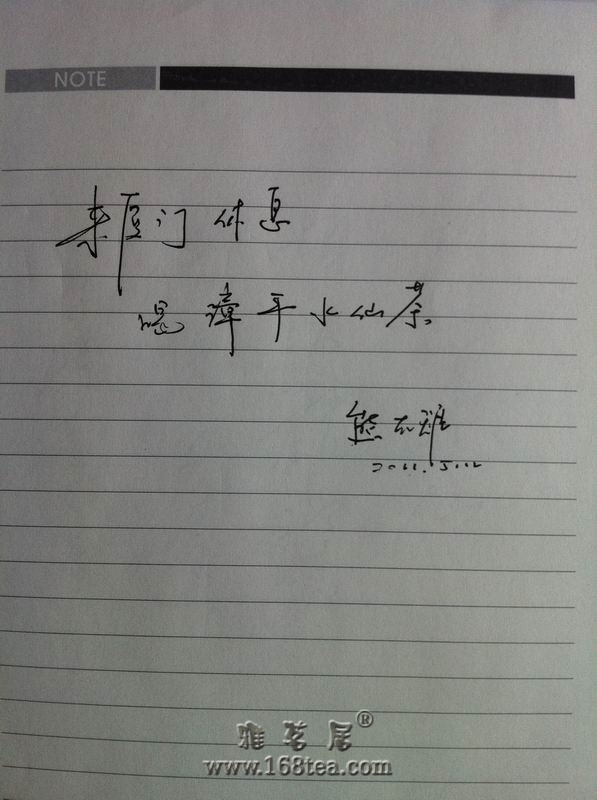 NOTE
来厦门休息
喝漳平水仙茶
熊大雅
2011.5.12
雅茗居®
www.168tea.com